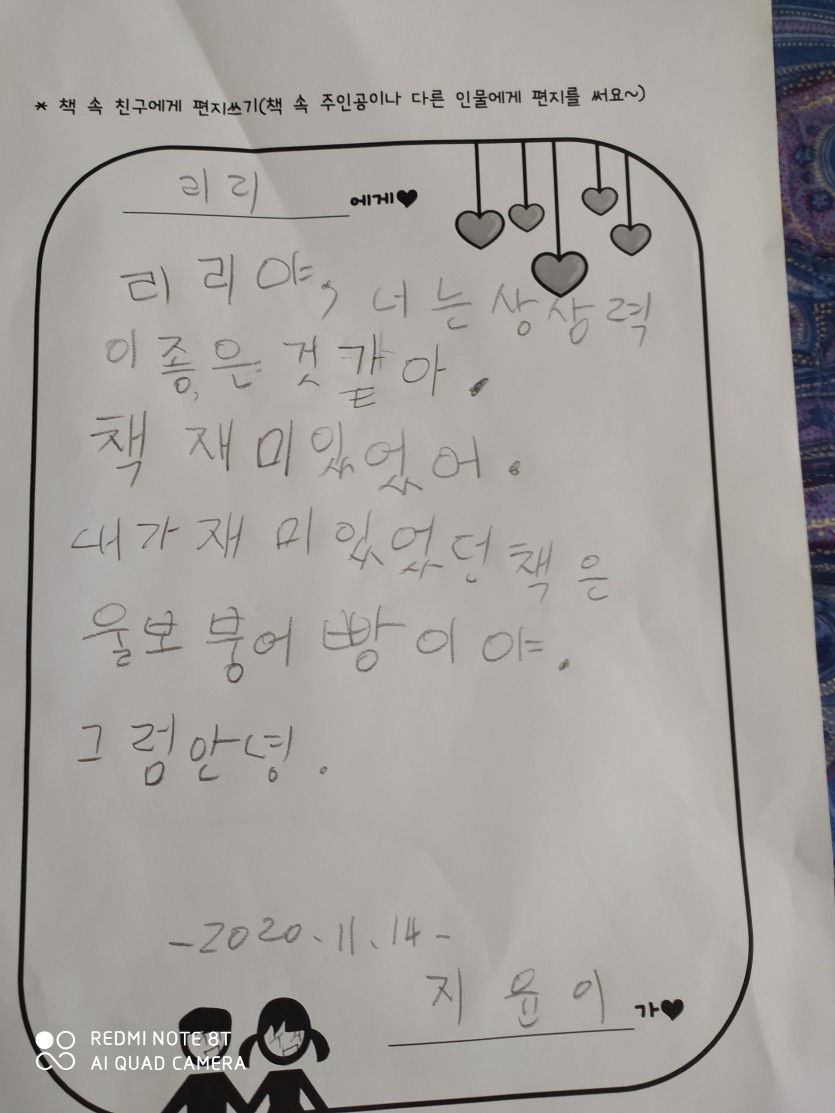 * 책 속 친구에게 편지쓰기(책 속 주인공이나 다른 인물에게 편지를 써요~)
리리 에게♥
리리야, 너는 상상력
이 좋은 것 같아.
책 재미있었어.
내가 재미있었던 책은
울보 붕어빵이야.
그럼 안녕.
-2020.11.14-
지윤이 가♥
REDMI NOTE 8T
AI QUAD CAMERA